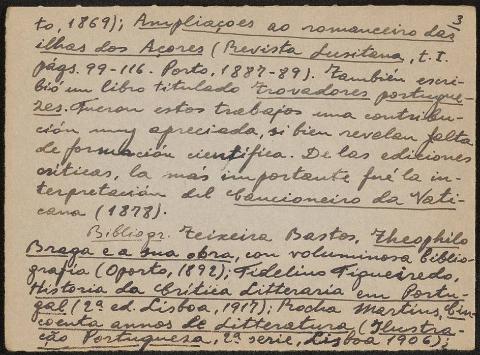 3
to, 1869); Ampliaçoes ao romanceiro das
ilhas dos Açores (Revista Lusitana, t. I.
págs. 99-116. Porto, 1887-89). También escri-
bió un libro titulado Trovadores portugue-
zes. Fueron estos trabajos una contribu-
ción muy apreciada, si bien revelan falta
de formación científica. De las ediciones
críticas, la más importante fué la in-
terpretación del Cancioneiro da Vati-
cana (1878).
Bibliogr. Teixeira Bastos, Theophilo
Braga e a sua obra, con voluminosa biblio-
grafia (Oporto, 1892); Fidelino Figueiredo,
Historia da Critica Litteraria em Portu-
gal (2ª ed. Lisboa, 1917); Rocha Martins, Cin-
coenta annos de Litteratura (Ilustra-
ção Portuguesa, 2ª serie, Lisboa 1906);